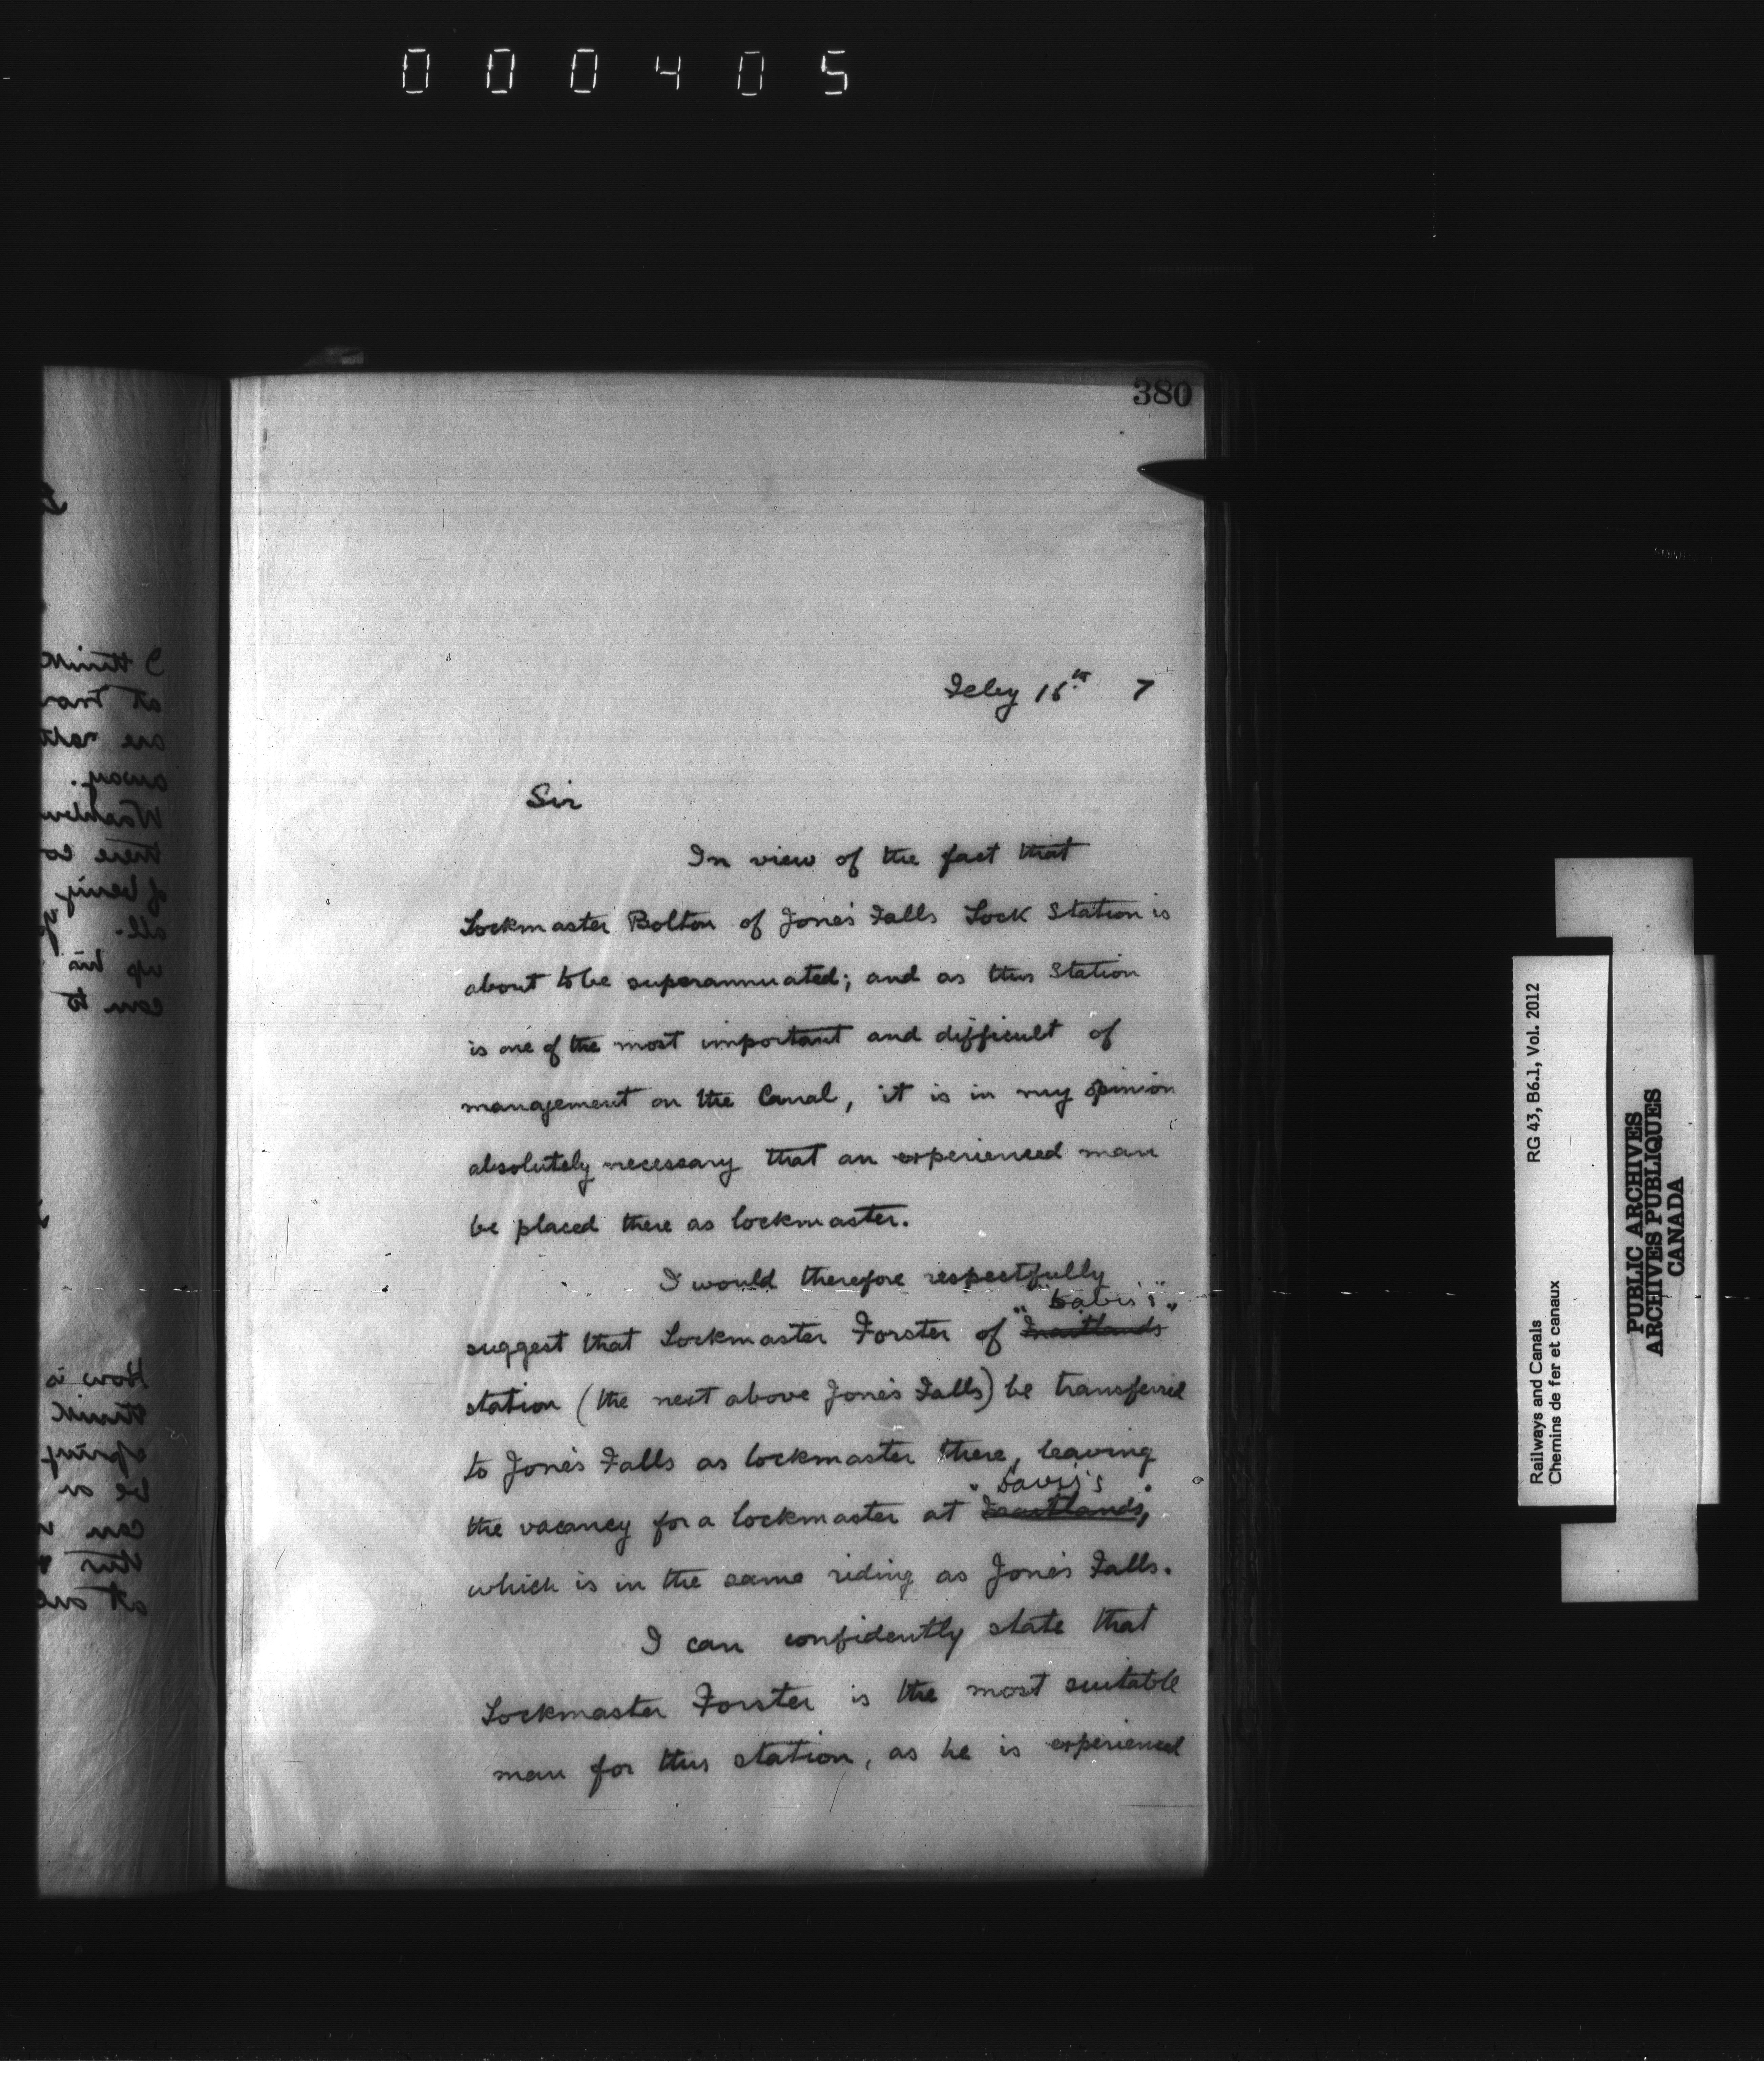 000405
380
Feby 15th 7
Sir
In view of the fact that
Lockmaster Bolton of Jone's Falls Lock Station is
about to be superannuated; and as this Station
is one of the most important and difficult of
management on the Canal, it is in my opinion
absolutely necessary that an experienced man
be placed there as lockmaster.
I would therefore respectfully
"Davis's"
suggest that Lockmaster Forster of
station (the next above Jone's Falls) be transferred
to Jone's Falls as lockmaster there, leaving
"Davis's"
the vacancy for a lockmaster at
which is in the same riding as Jone's Falls.
I can confidently state that
Lockmaster Forster is the most suitable
man for this station, as he is experienced
Railways and Canals RG 43, B6.1, Vol. 2012
Chemins de fer et canaux
PUBLIC ARCHIVES
ARCHIVES PUBLIQUES
CANADA